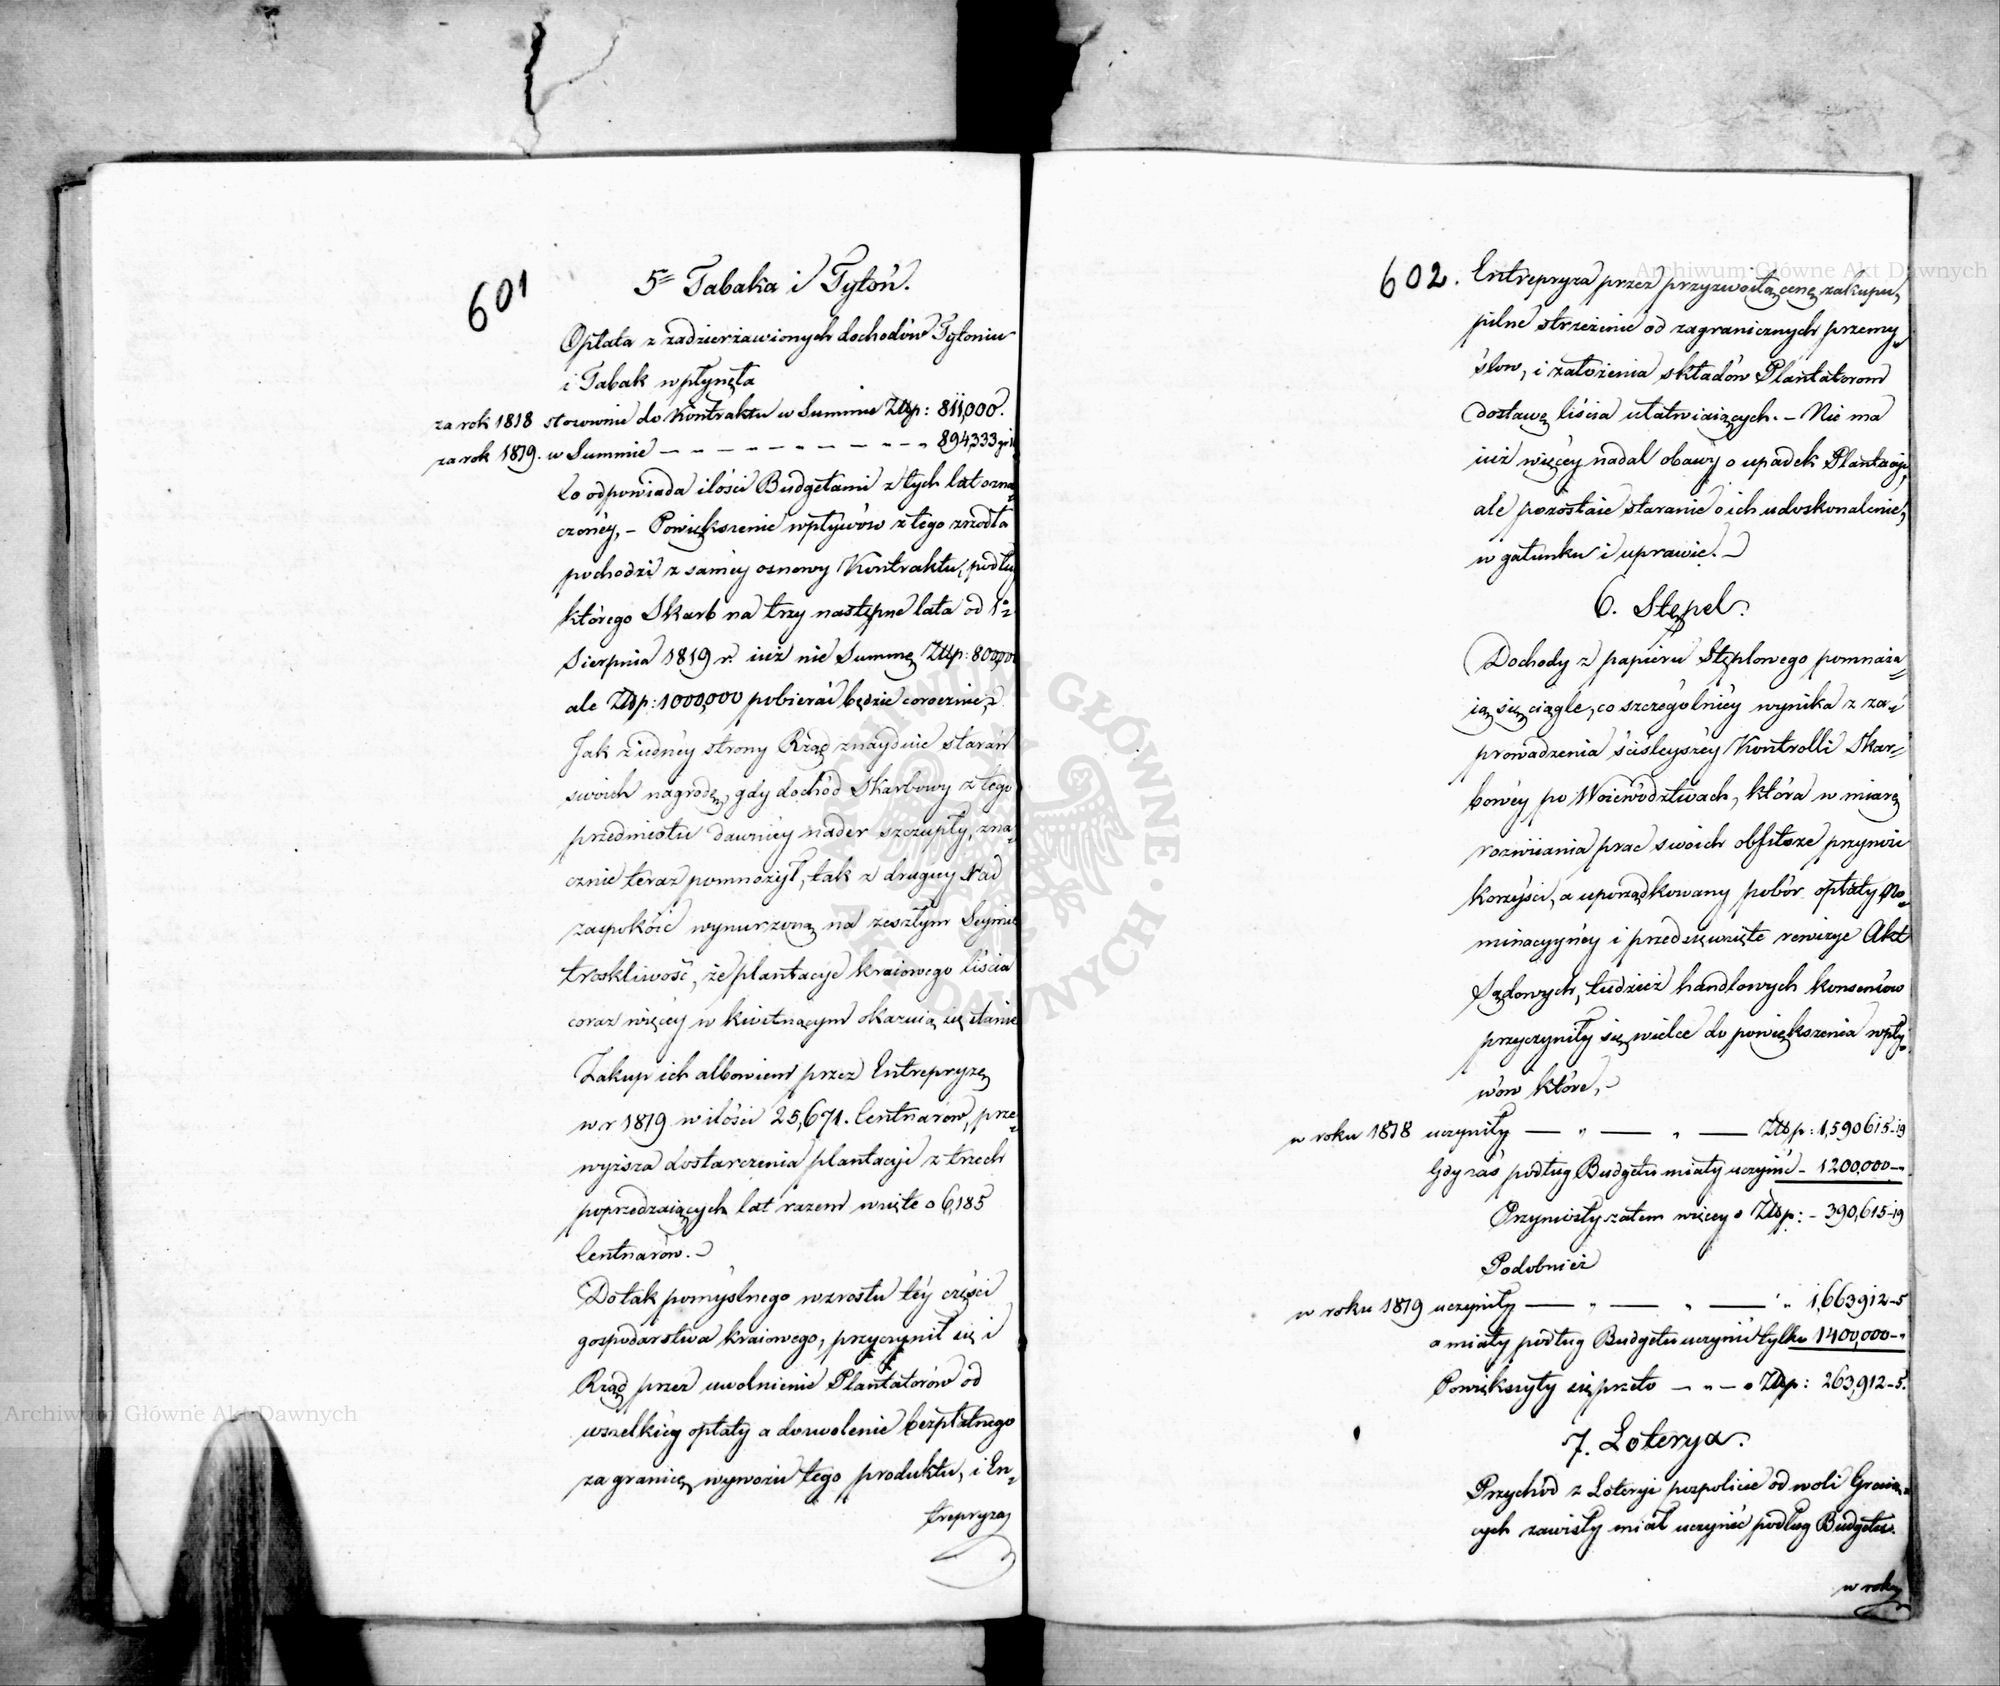 601
5º Tabaka i Tytoń.
Opłata z zadzierżawionych dochodów Tytoniu
i Tabak wpłynęła
za rok 1818 stosownie do Kontraktu w Summie Złtp: 811,000.
za rok 1819. w Summie — „ — „ — „ — 894,333 gr
Co odpowiada ilości Budgetami z tych lat ozna„
czoney, – Powiększenie wpływów z tego źrzodła
pochodzi z samey osnowy Kontraktu, podług
którego Skarb na trzy następne lata od 1º
Sierpnia 1819 r. iuż nie Summę Złtp: 800,000
ale Złtp: 1000,000 pobierać będzie corocznie,
Jak z iedney strony Rząd znayduie starań
swoich nagrodę, gdy dochód Skarbowy z tego
przedmiotu dawniey nader szczupły, zna„
cznie teraz pomnożył, tak z drugiey Rad
zaspokóić wynurzoną na zeszłym Seymie
troskliwość, że plantacye kraiowego liścia
coraz więcey w kwitnącym okazuią się stanie
Zakup ich albowiem przez Entrepryzę
w r 1819 w ilości 25,671. Centnarów, prze„
wyższa dostarczenia plantacyi z trzech
poprzedzaiących lat razem wzięte o 6,185
Centnarów. –
Do tak pomyślnego wzrostu téy części
gospodarstwa kraiowego, przyczynił się i
Rząd przez uwolnienie Plantatorów od
wszelkiey opłaty a dozwolenie bezpłatnego
za granicę wywozu tego produktu, i En„
trepryza
602. Entrepryza przez przyzwoitą cenę zakupu,
pilne strzeżenie od zagranicznych przemy„
słow, i założenia składów Plantatorom
dostawę liścia ułatwiaiących. – Nie ma
iuż więcey nadal obawy o upadek Plantacyi,
ale pozostaie staranie o ich udoskonalenie,
w gatunku i uprawie. –
6. Stępel.
Dochody z papieru Stęplowego pomnaża„
ią się ciągle, co szczególniey wynika z za„
prowadzenia ściśleyszey Kontrolli Skar„
bowéy po Woiewództwach, która w miarę
rozwiiania prac swoich obfitsze przynosi
korzyści, a uporządkowany pobór opłaty No„
minacyyney i przedsięwzięte rewizye Akt
Sądowych, tudzież handlowych konsensów
przyczyniły się wielce do powiększenia wpły„
wów które, –
w roku 1818 uczyniły — „ — „ — Złtp: 1,590615-19
Gdy zaś podług Budgetu miały uczynić - 1200,000-„
Przyniosły zatem więcey o Złtp: - 390,615-19
Podobnież
w roku 1819 uczyniły — „ — „ — „ 1,663912-5
a miały podług Budgetu uczynić tylko 1400,000-„
Powiększyły się przeto — „ — o Złtp: 263,912-5.
7. Loterya.
Przychód z Loteryi pospolicie od woli Graią„
cych zawisły miał uczynić podług Budgetu.
w roku
Archiwum Główne Akt Dawnych
Archiwum Główne Akt Dawnych
ARCHIWUM GŁÓWNE AKT DAWNYCH